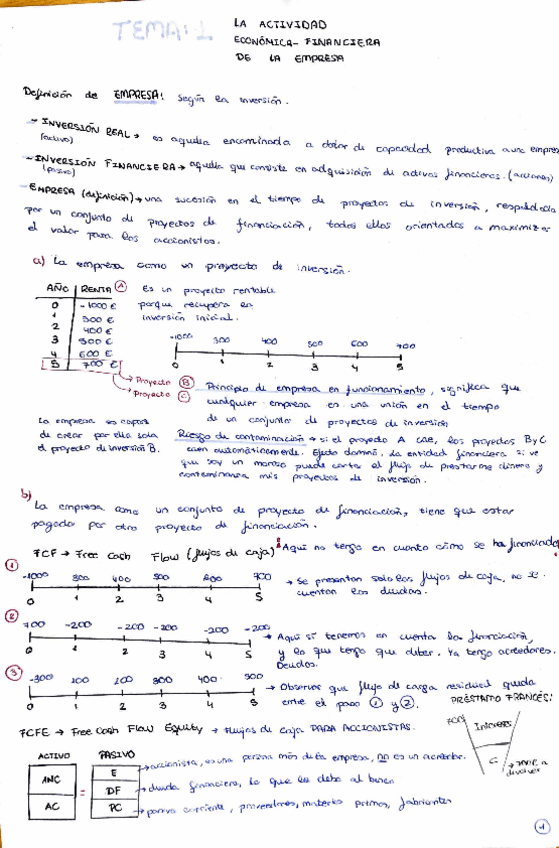 TEMA: 1
LA ACTIVIDAD
ECONÓMICA - FINANCIERA
DE LA EMPRESA
Definición de EMPRESA: Según la inversión.
- INVERSIÓN REAL → es aquella encaminada a dotar de capacidad productiva a una empresa
(activo)
- INVERSIÓN FINANCIERA → aquella que consiste en adquisición de activos financieros. (acciones)
(pasivo)
- EMPRESA (definición) → una sucesión en el tiempo de proyectos de inversión, respaldada
por un conjunto de proyectos de financiación, todos ellos orientados a maximizar
el valor para los accionistas.
a) La empresa como un proyecto de inversión.
AÑO RENTA A
0 -1000 €
1 300 €
2 400 €
3 500 €
4 600 €
5 700 €
Es un proyecto rentable
porque recupera la
inversión inicial.
-1000 300 400 500 600 700
0 1 2 3 4 5
→ Proyecto B
→ Proyecto C
Principio de empresa en funcionamiento, significa que
cualquier empresa es una unión en el tiempo
de un conjunto de proyectos de inversión
La empresa es capaz
de crear por ella sola
el proyecto de inversión B.
Riesgo de contaminación → si el proyecto A cae, los proyectos B y C
caen automáticamente. Efecto dominó. La entidad financiera si ve
que soy un moroso puede cortar el flujo de prestarme dinero y
contaminará mis proyectos de inversión.
b)
La empresa como un conjunto de proyecto de financiación, tiene que estar
pagado por otro proyecto de financiación.
FCF → Free Cash Flow (flujos de caja) Aquí no tengo en cuenta cómo se ha financiado
1
-1000 300 400 500 600 700
0 1 2 3 4 5
→ Se presentan solo los flujos de caja, no se
cuentan las deudas.
2
700 -200 -200 -200 -200 -200
0 1 2 3 4 5
→ Aquí sí tenemos en cuenta la financiación,
y lo que tengo que deber. Ya tengo acreedores.
Deudas.
3
-300 100 200 300 400 500
0 1 2 3 4 5
→ Observar que flujo de carga residual queda
entre el paso 1 y 2.
PRÉSTAMO FRANCÉS:
INTERESES
C
FCFE → Free Cash Flow Equity → Flujos de caja PARA ACCIONISTAS.
ACTIVO PASIVO
ANC
AC
=
E
DF
PC
→ accionista, es una persona más de la empresa, no es un acreedor.
→ deuda financiera, lo que les debo al banco
→ pasivo corriente, proveedores, materias primas, fabricantes
1